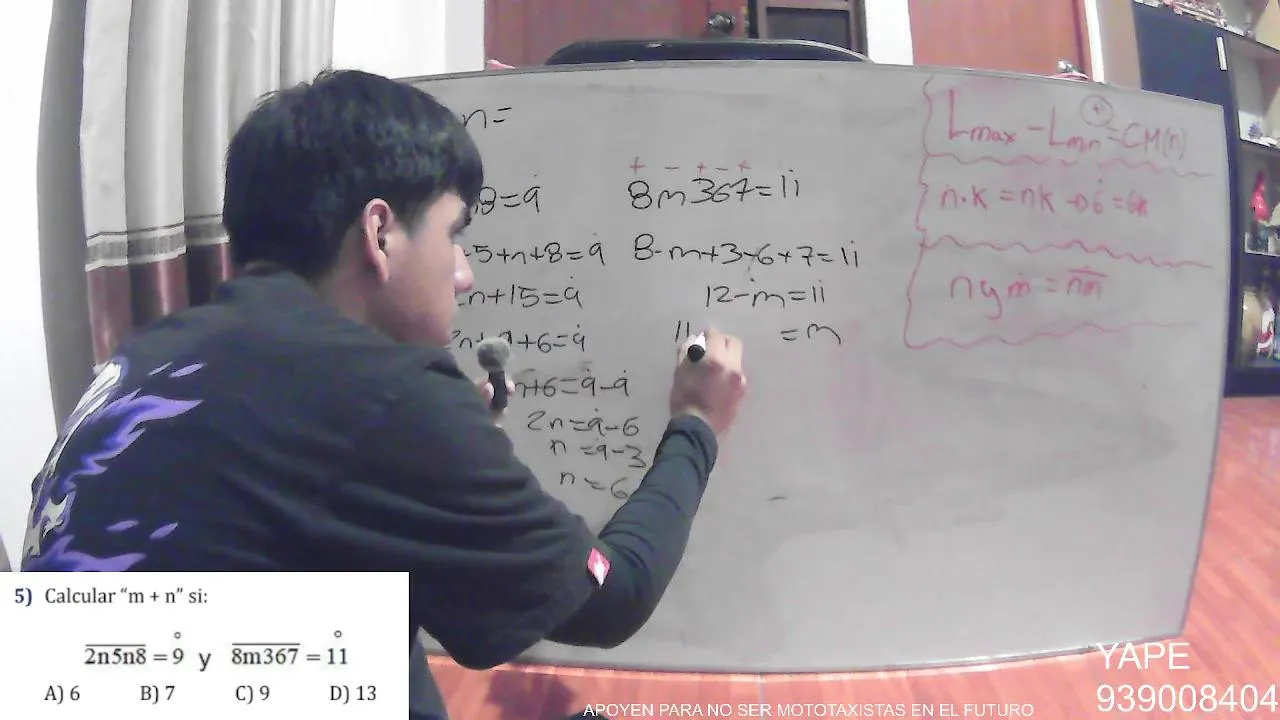 n=
8=9̇
5+n+8=9̇
2n+15=9̇
2n+9+6=9̇
n+6=9̇-9̇
2n=9̇-6
n=9̇-3
n=6
+ - + - +
8m367=11̇
8-m+3-6+7=11̇
12-m=11̇
11 =m
+
Lmax-Lmin=CM(n)
ṅ.k=ṅk→6̇=6k
ṅ y ṁ=
5) Calcular “m + n” si:
2n5n8 = 9̊ y 8m367 = 11̊
A) 6 B) 7 C) 9 D) 13
YAPE
939008404
APOYEN PARA NO SER MOTOTAXISTAS EN EL FUTURO